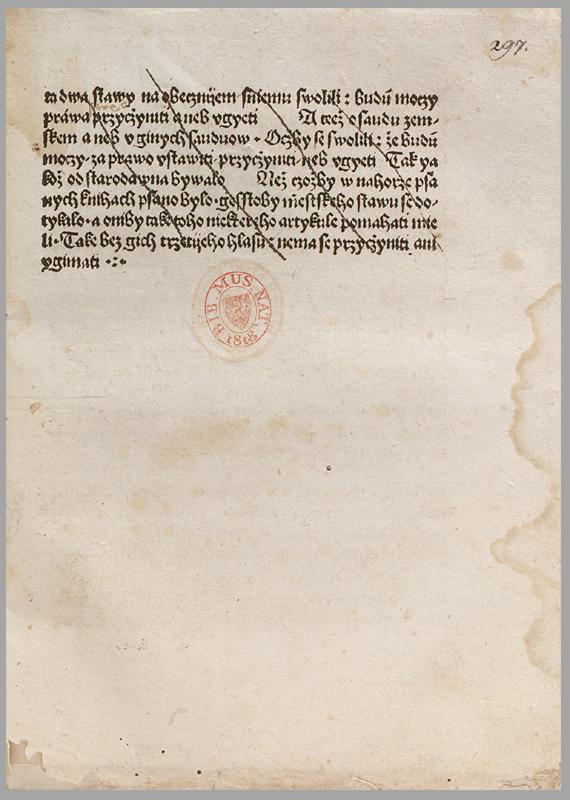 297.
ta dwa stawy na obecznijem sniemu swolili : budū moczy
práwa przyczyniti a neb vgyeti A też o saudu zem-
skem a neb v ginych sauduow · Oczby se swolili : że budū
moczy · za prawo vstawiti · przyczyniti · neb vgyeti Tak ya
kdż od starodawna bywalo Neż czożby w nahorze psa
nych knihach psano bylo · gesstoby miestskeho stawu se do-
tykalo · a oniby takewho niektereho artykule pomahati mie
li · Take bez gich trzetijeho hlasu : nema se przyczyniti ani
vgimati ·:·
BIB. MUS. NAT. 1818